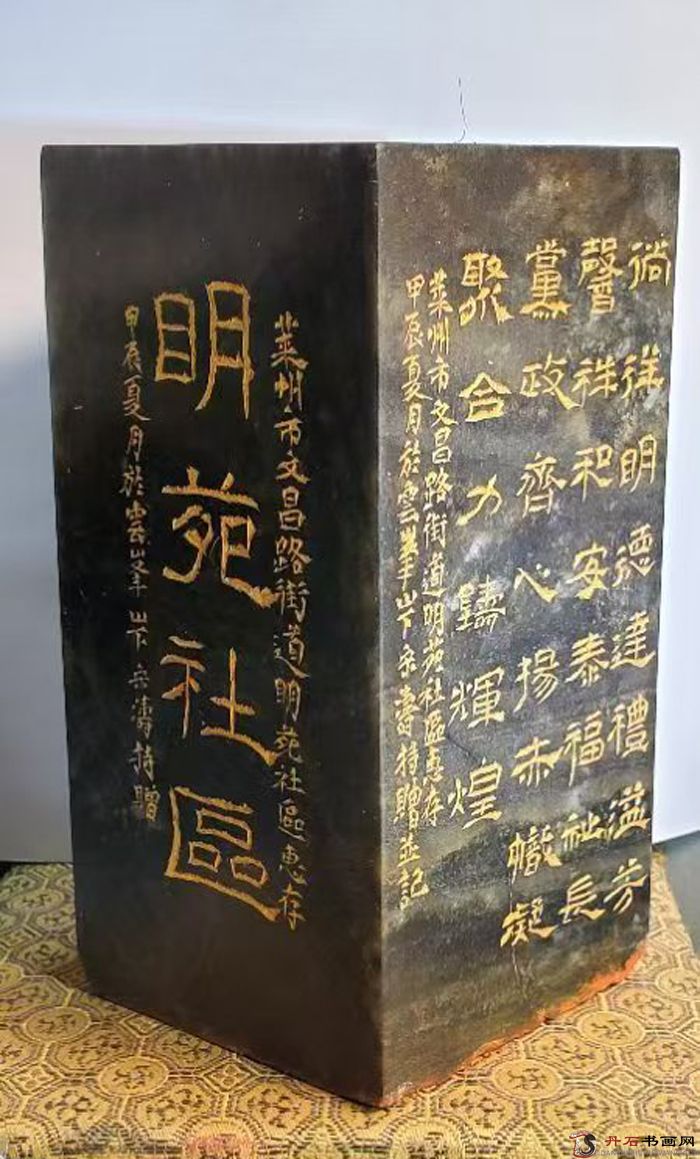 萊州市文昌路街道明苑社區惠存
明苑社區
甲辰夏月於雲峯山下濤持贈
徜徉明德達禮溢芳
馨祥和安泰福祉長
黨政齊心揚赤幟凝
聚合力鑄輝煌
萊州市文昌路街道明苑社區惠存
甲辰夏月於雲峯山下濤持贈並記
丹石书画网